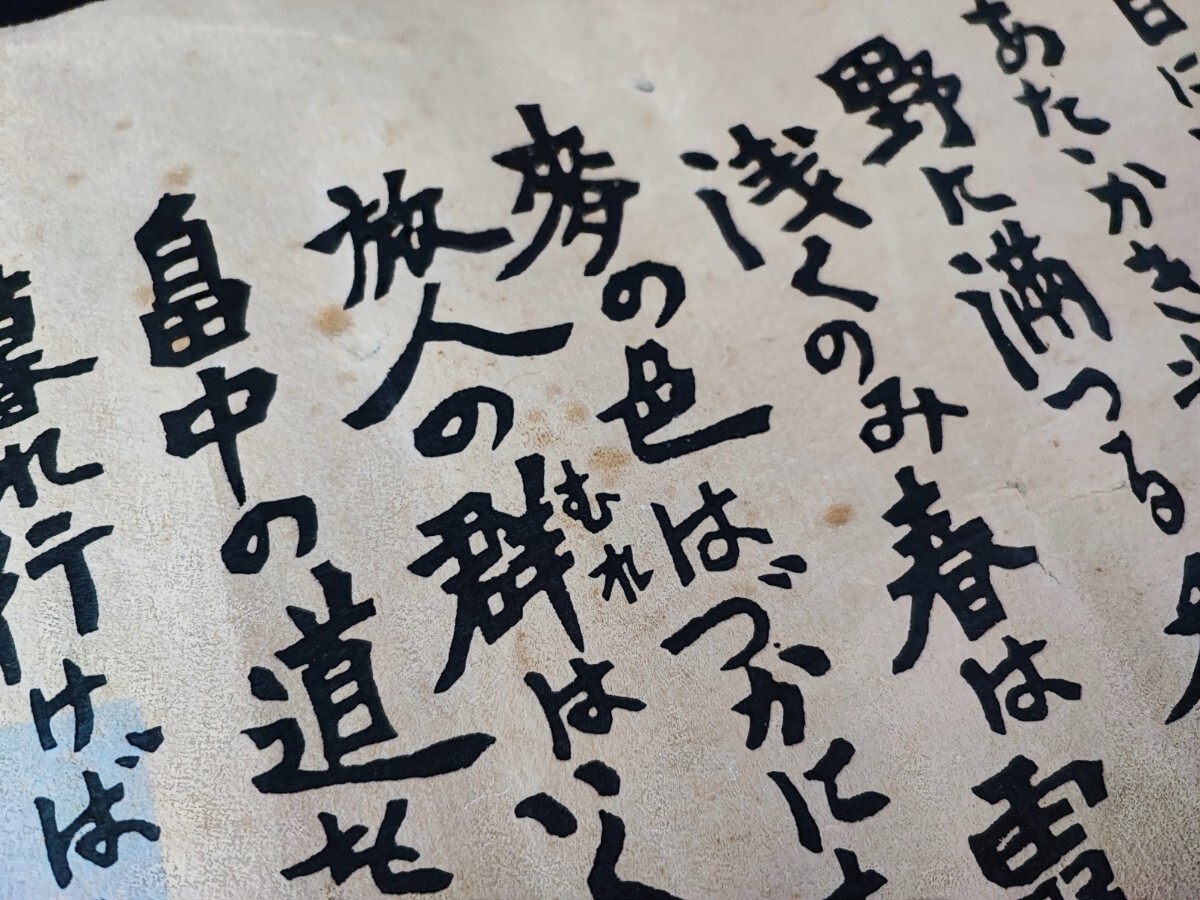 日に
あたゝかき光
野に満つる
浅くのみ春は霞
麦の色はづかに
旅人の群はい
むれ
畠中の道を
暮れ行けば